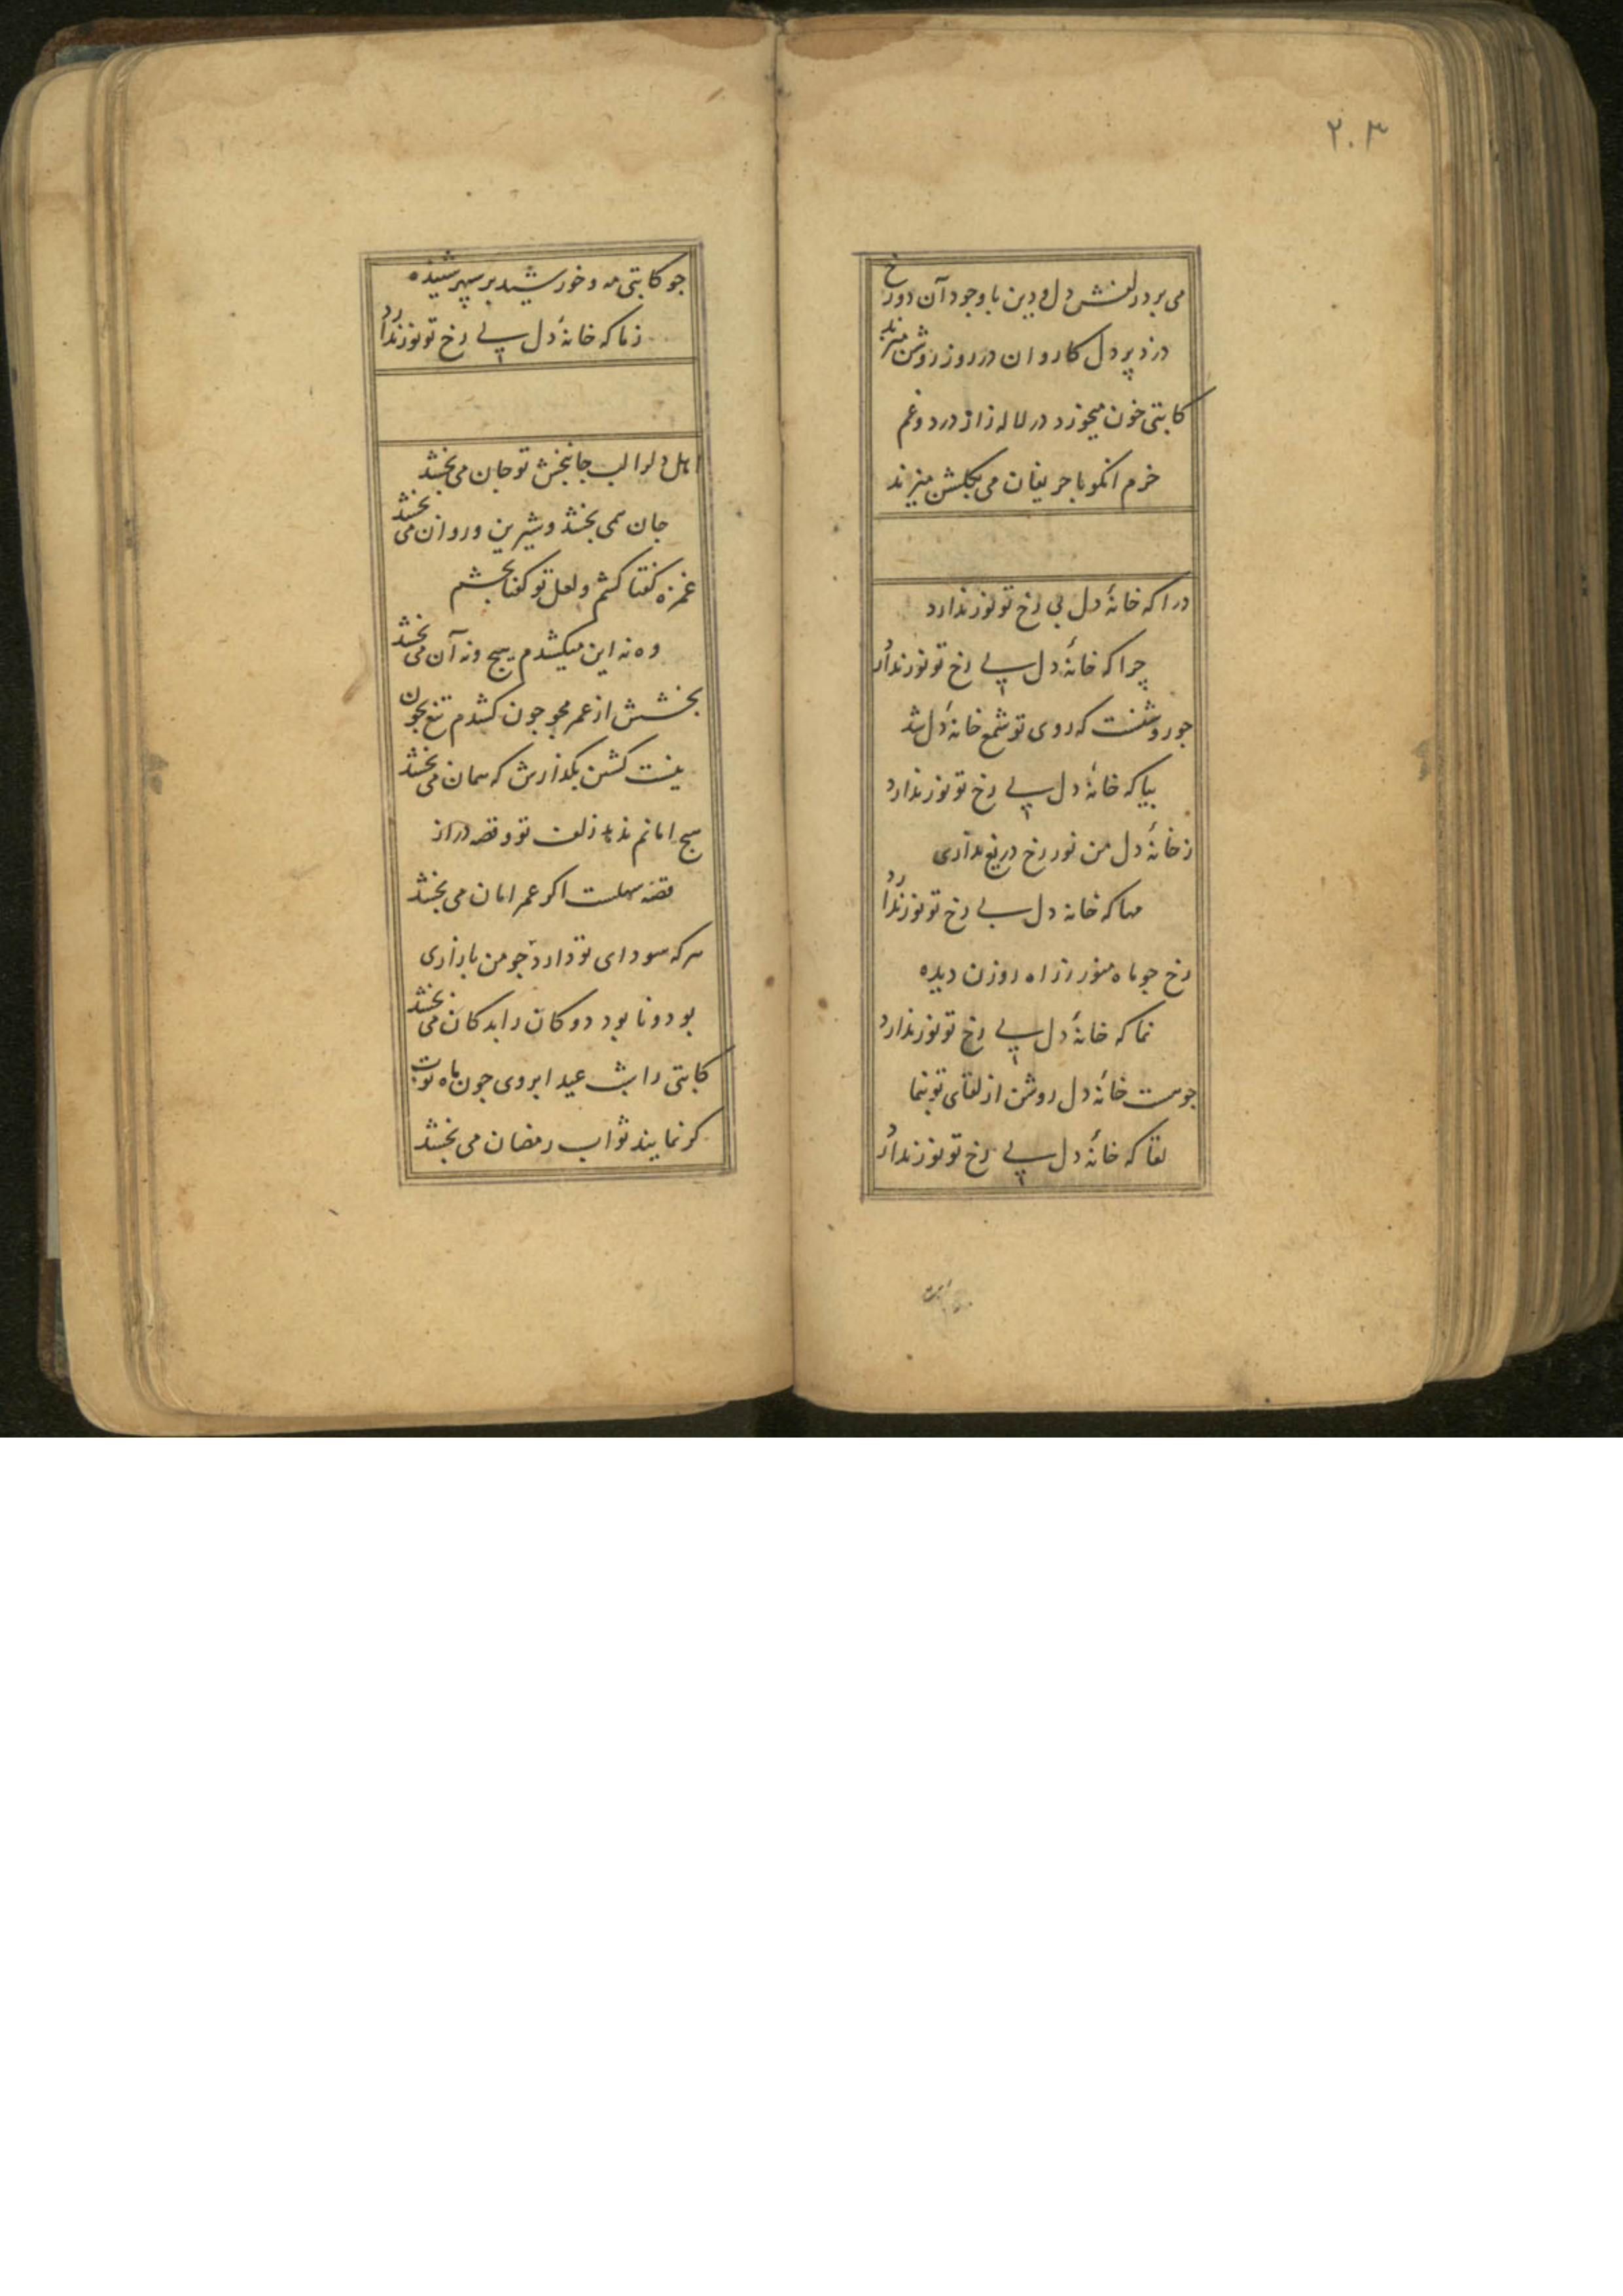 ۲۰۳
می برد زلفش دل و دین با وجود آن دو رخ
دزد پر دل کاروان در روز روشن میزند
کاتبی خون میخورد در لاله زار از درد و غم
خرم آنکو با حریفان می بگلشن میزند
درا که خانهٔ دل بی رخ تو نور ندارد
چرا که خانهٔ دل بی رخ تو نور ندارد
جو روشنست که روی تو شمع خانهٔ دل شد
بیا که خانهٔ دل بی رخ تو نور ندارد
ز خانهٔ دل من نور رخ دریغ نداری
مها که خانه دل بی رخ تو نور ندارد
رخ جو ماه منور ز راه روزن دیده
نما که خانهٔ دل بی رخ تو نور ندارد
جو هست خانهٔ دل روشن از لقای تو بنما
لقا که خانهٔ دل بی رخ تو نور ندارد
جو کاتبی مه و خورشید بر سپهر شنیده
ز ما که خانهٔ دل بی رخ تو نور ندارد
اهل دلرا لب جانبخش تو جان می بخشد
جان همی بخشد و شیرین و روان می بخشد
غمزه گفتا کشم و لعل تو گفتا بخشم
وه نه این میکشدم هیچ و نه آن می بخشد
بخشش از عمر مجو جون کشدم تیغ بخون
نیست کشتن بگذارش که همان می بخشد
هیچ امانم ندهد زلف تو و قصه دراز
قصه سهلست اگر عمر امان می بخشد
هر که سودای تو دارد جو من بازاری
بود و نابود دو کان را بدکان می بخشد
کاتبی را شب عید ابروی جون ماه نوت
گر نمایند ثواب رمضان می بخشد